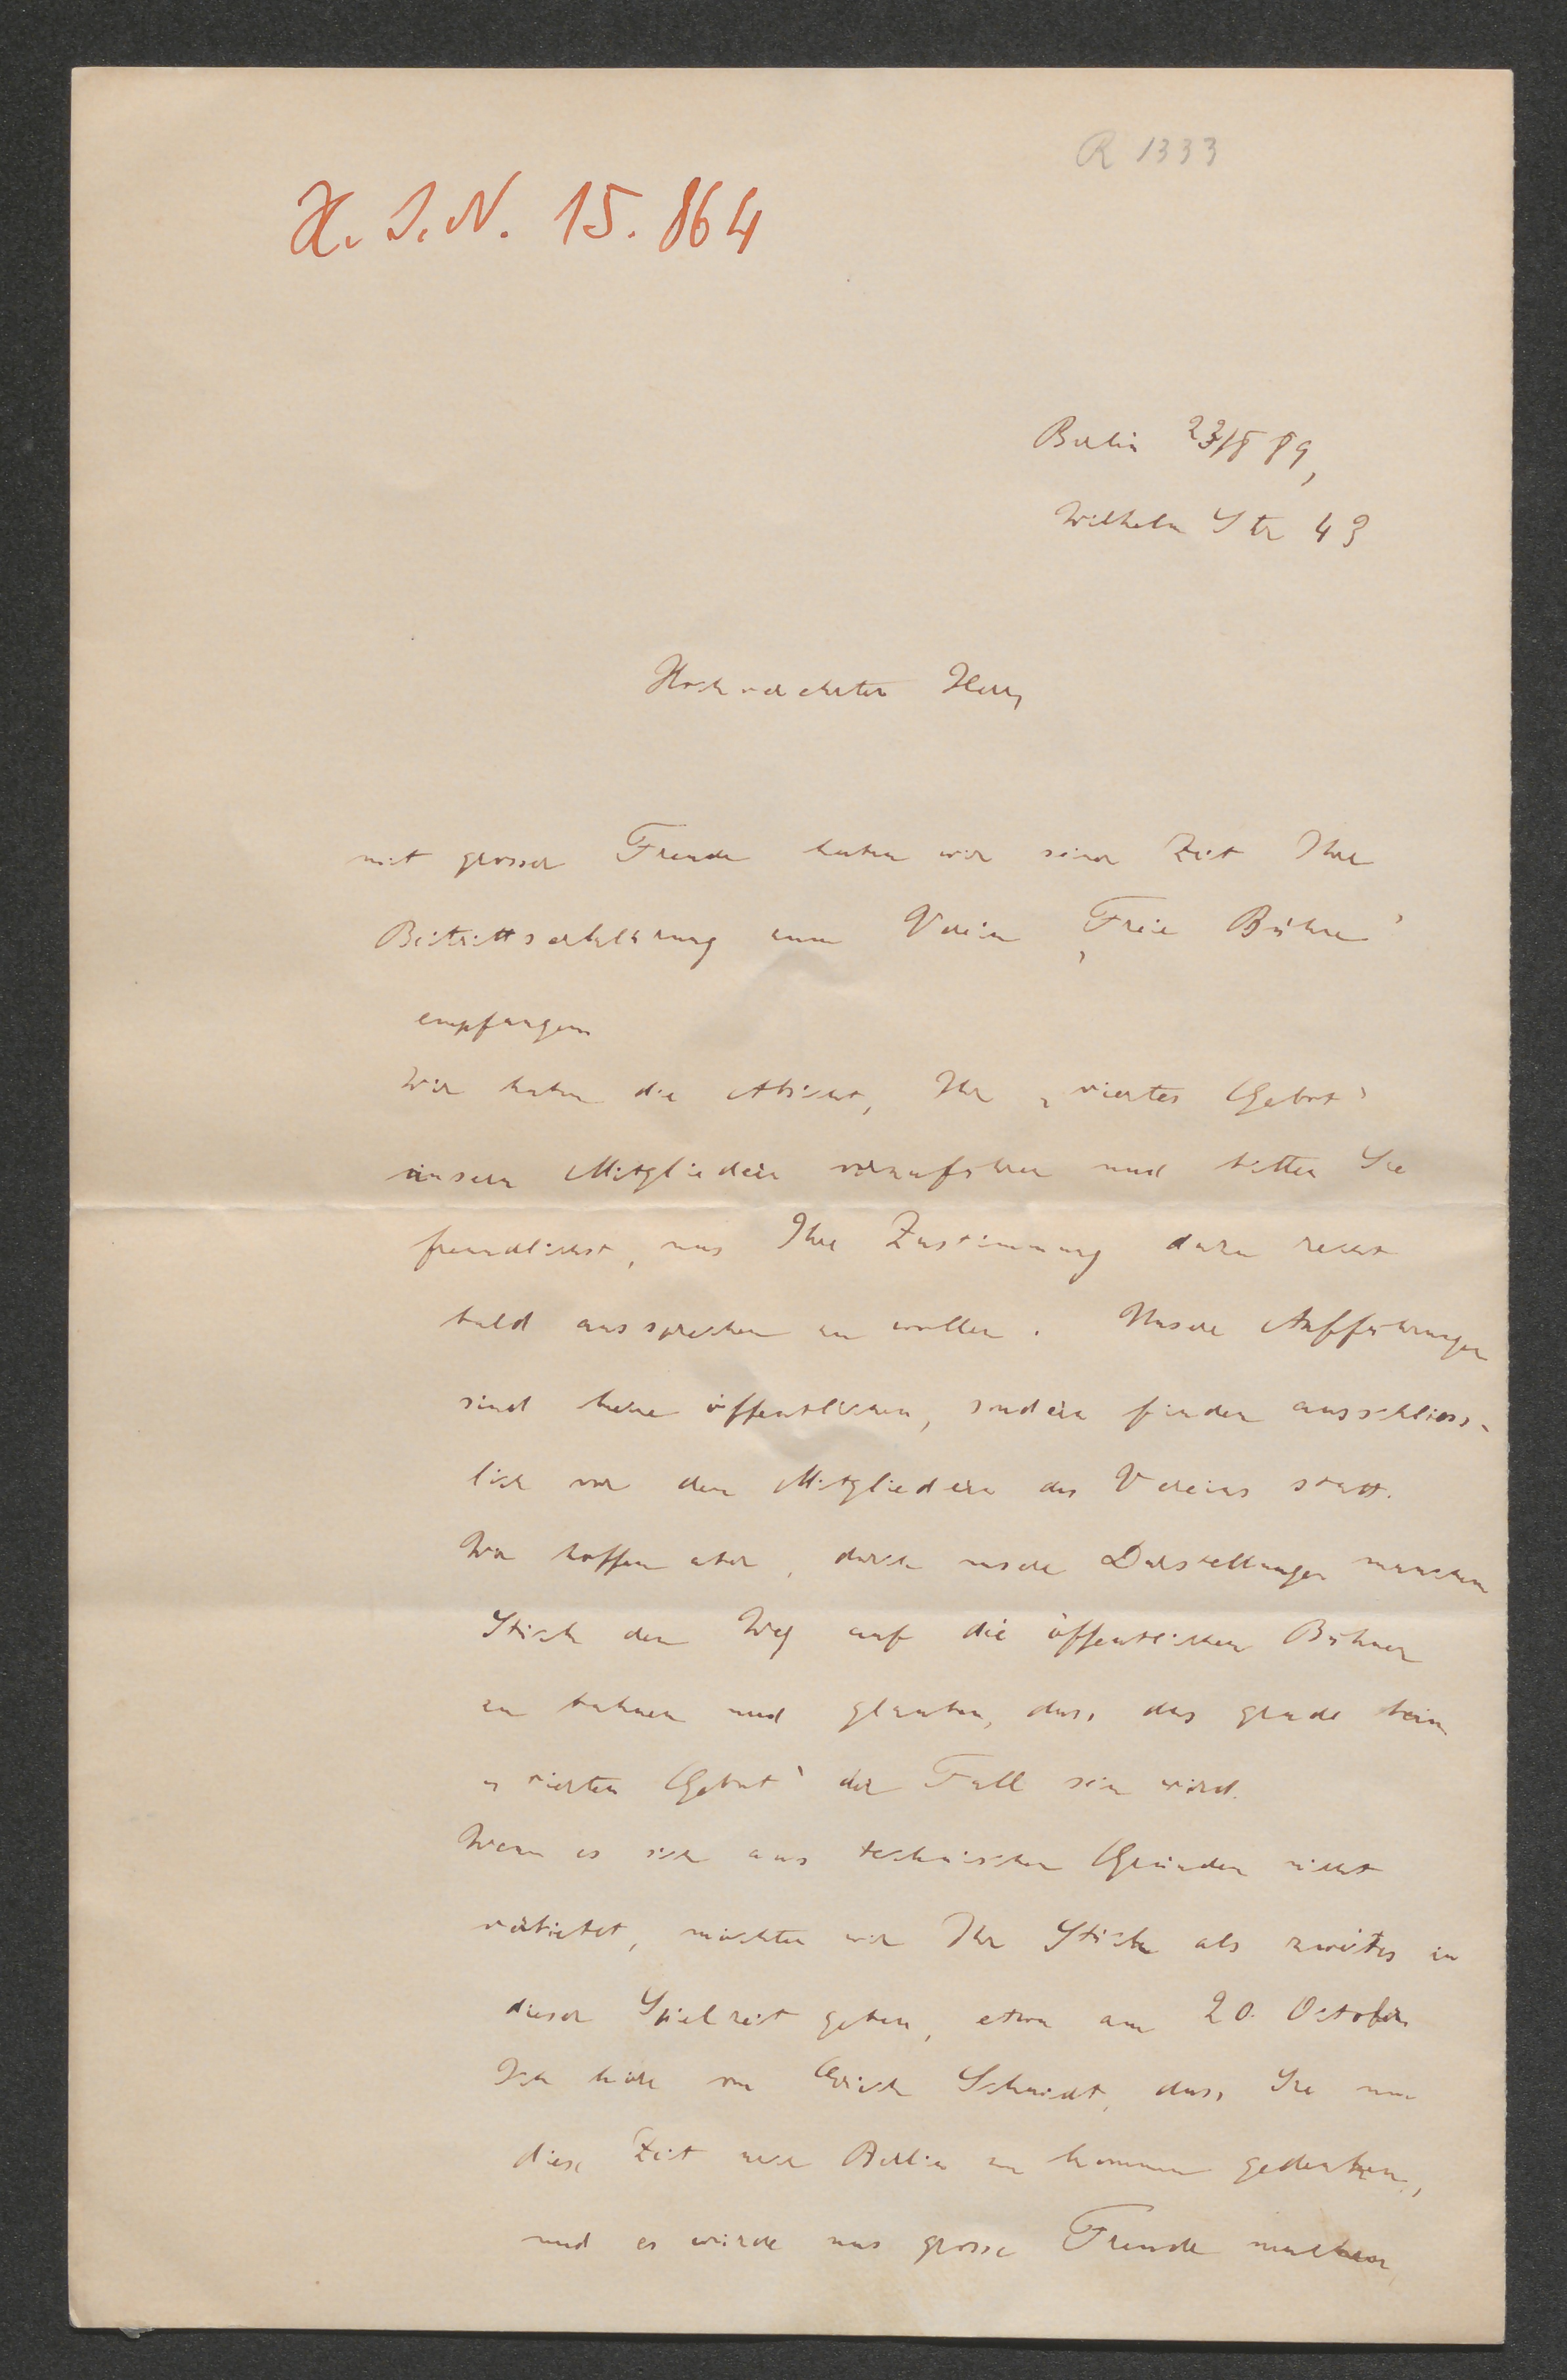 R 1333
H. I. N. 15.864
Berlin 23/8 89,
Wilhelm Str 43
Hochverehrter Herr,
mit grosser Freude haben wir seiner Zeit Ihre
Beitrittserklärung zum Verein „Freie Bühne“
empfangen
Wir haben die Absicht, Ihr „viertes Gebot“
unsern Mitgliedern vorzuführen und bitten Sie
freundlichst, uns Ihre Zustimmung dazu recht
bald aussprechen zu wollen. Unsere Aufführungen
sind keine öffentlichen, sondern finden ausschliess-
lich vor den Mitgliedern des Vereins statt.
Wir hoffen aber, durch unsere Darstellungen manchem
Stück den Weg auf die öffentlichen Bühnen
zu bahnen und glauben, dass das grade beim
„vierten Gebot“ der Fall sein wird.
Wenn es sich aus technischen Gründen nicht
verbietet, möchten wir Ihr Stück als zweites in
dieser Spielzeit geben, etwa am 20. October
Ich höre von Erich Schmidt, dass Sie um
diese Zeit nach Berlin zu kommen gedenken,
und es würde uns grosse Freude machen,